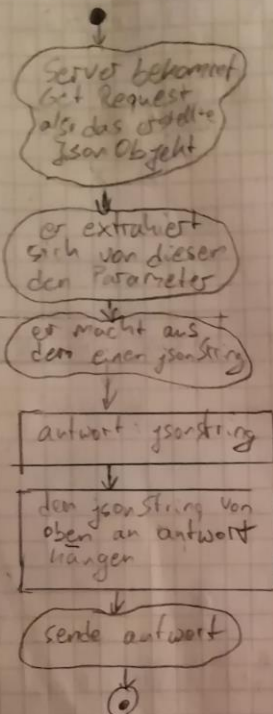 Server bekommt
Get Request
also das erstellte
Json Objekt
er extrahiert
sich von dieser
den Parameter
er macht aus
dem einen jsonString
antwort : jsonString
den jsonString von
oben an antwort
hängen
sende antwort